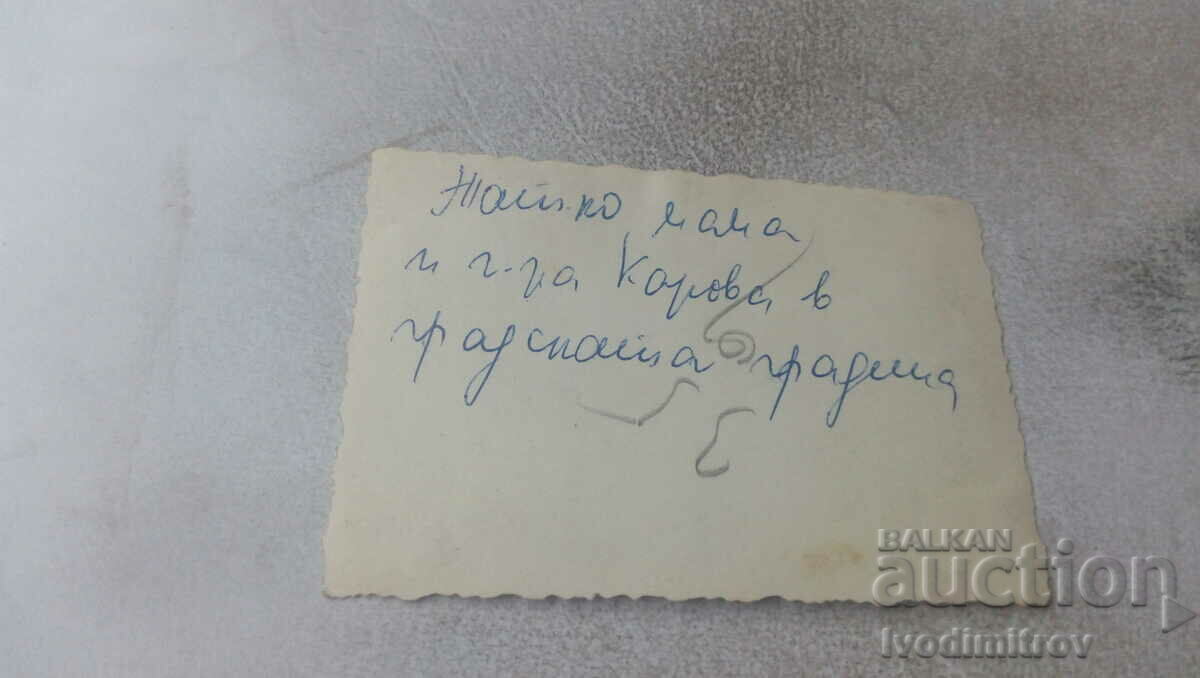 Жатко, мама
и г-жа Карова в
градската градина
BALKAN
auction
Ivodimitrov